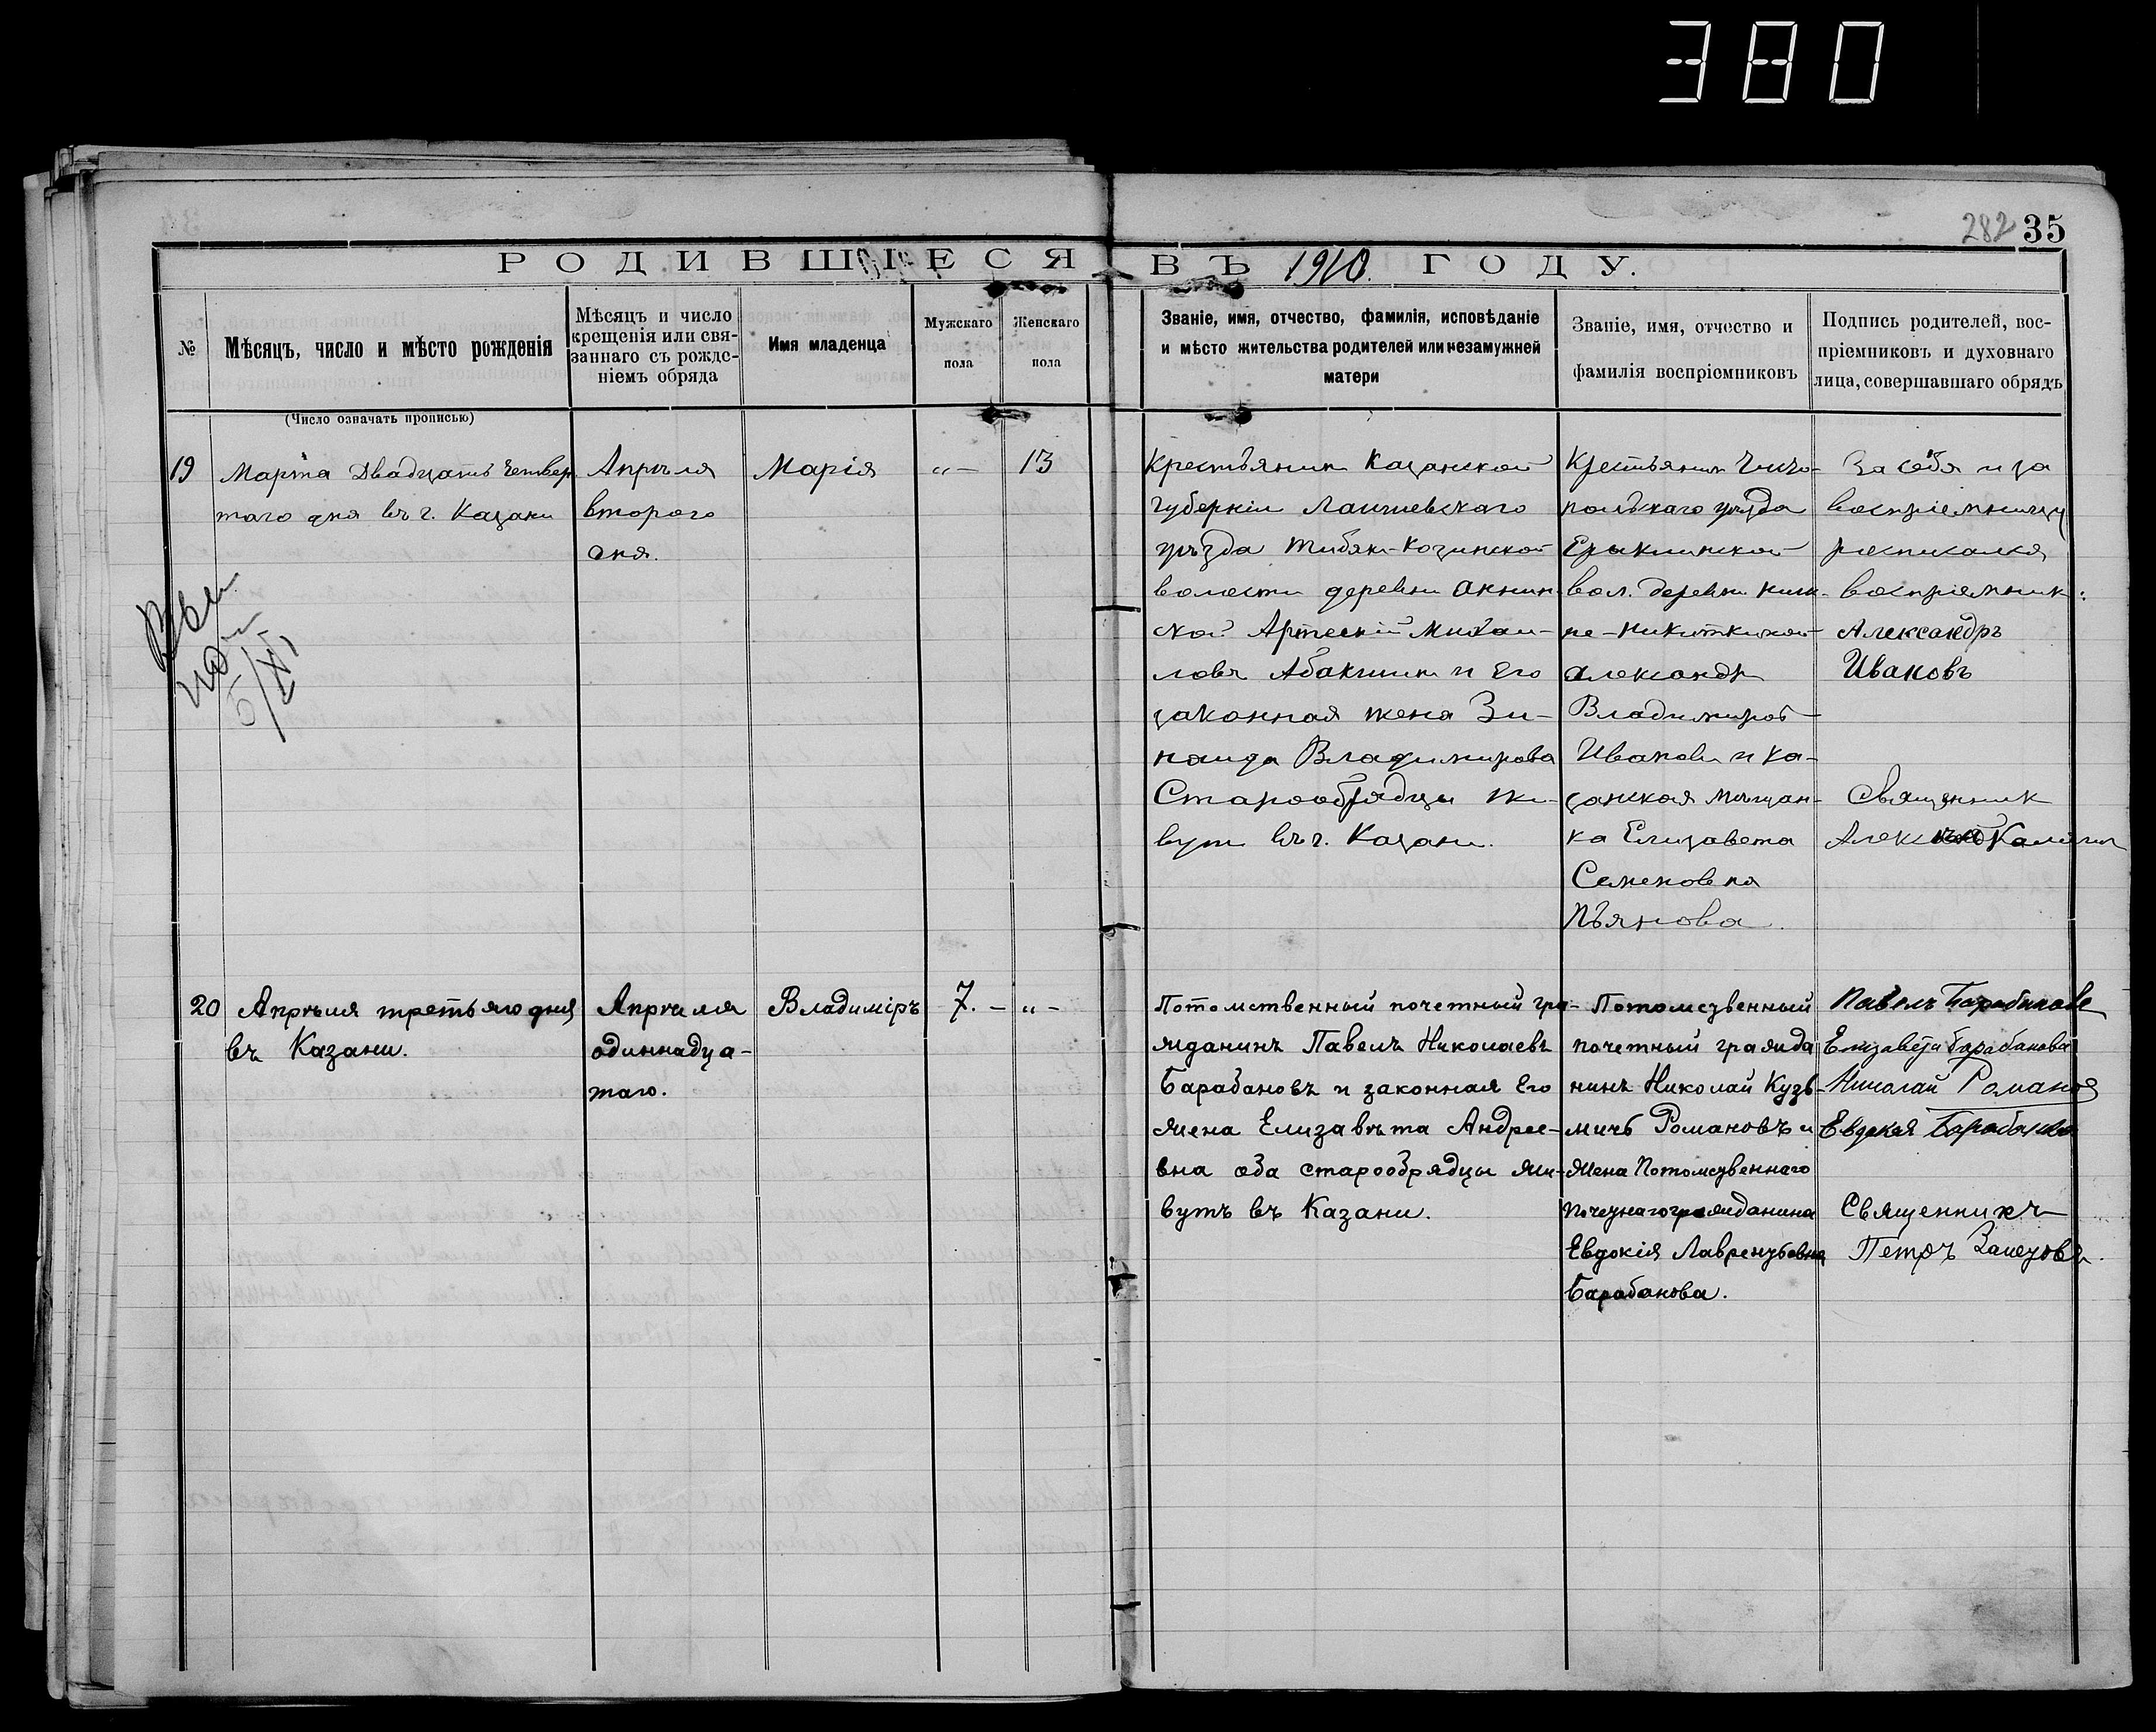 380
282 35
РОДИВШІЕСЯ ВЪ 1910. ГОДУ.
№
Мѣсяцъ, число и мѣсто рожденія
Мѣсяцъ и число
крещенія или свя-
заннаго съ рожде-
ніемъ обряда
Имя младенца
Мужскаго
пола
Женскаго
пола
Званіе, имя, отчество, фамилія, исповѣданіе
и мѣсто жительства родителей или незамужней
матери
Званіе, имя, отчество и
фамилія воспріемниковъ
Подпись родителей, вос-
пріемниковъ и духовнаго
лица, совершавшаго обрядъ
(Число означать прописью)
19
Марта Двадцать четвер-
таго дня въ г. Казани
Апрѣля
второго
дня.
Марія
"–
13
Крестьянин Казанской
Губерніи Лаишевскаго
уѣзда
волости деревни
Михаи-
ловъ и Его
законная жена Зи-
наида Владимирова
Старообрядцы жи-
вут въ г. Казани.
Крестьянин Чисто-
польскаго уѣзда
вол. деревни
Александръ
Владимиров
Ивановъ и Ка-
занская мѣщан-
ка Елизавета
Семеновна
Пьянова.
За себя и за
воспріемницу
росписался
воспріемник:
Александръ
Ивановъ
Священник
5/XI
20
Апрѣля третьяго дня
въ Казани.
Апрѣля
одиннадца-
таго.
Владиміръ
7. –
"–
Потомственный почетный гра-
жданинъ Павелъ Николаевъ
Барабановъ и законная Его
жена Елизавѣта Андрее-
вна оба старообрядцы жи-
вутъ въ Казани.
Потомственный
почетный гражда
нинъ Николай Кузь-
мичъ Романовъ и
жена Потомственнаго
Почетнаго гражданина
Евдокія Лаврентьевна
Барабанова.
Павелъ Барабановъ
Елизавета Барабанова
Николай Романов
Евдокея Барабанова
Священникъ
Петръ